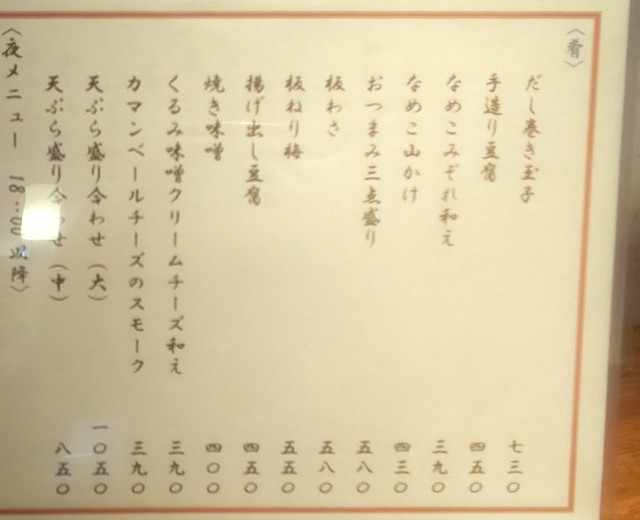 〈肴〉
だし巻き玉子 七三〇
手造り豆腐 四五〇
なめこみぞれ和え 三九〇
なめこ山かけ 四三〇
おつまみ三点盛り 五八〇
板わさ 五八〇
板ねり梅 五五〇
揚げ出し豆腐 四五〇
焼き味噌 四〇〇
くるみ味噌クリームチーズ和え 三九〇
カマンベールチーズのスモーク 三九〇
天ぷら盛り合わせ（大） 一〇五〇
天ぷら盛り合わせ（中） 八五〇
〈夜メニュー 18:00以降〉